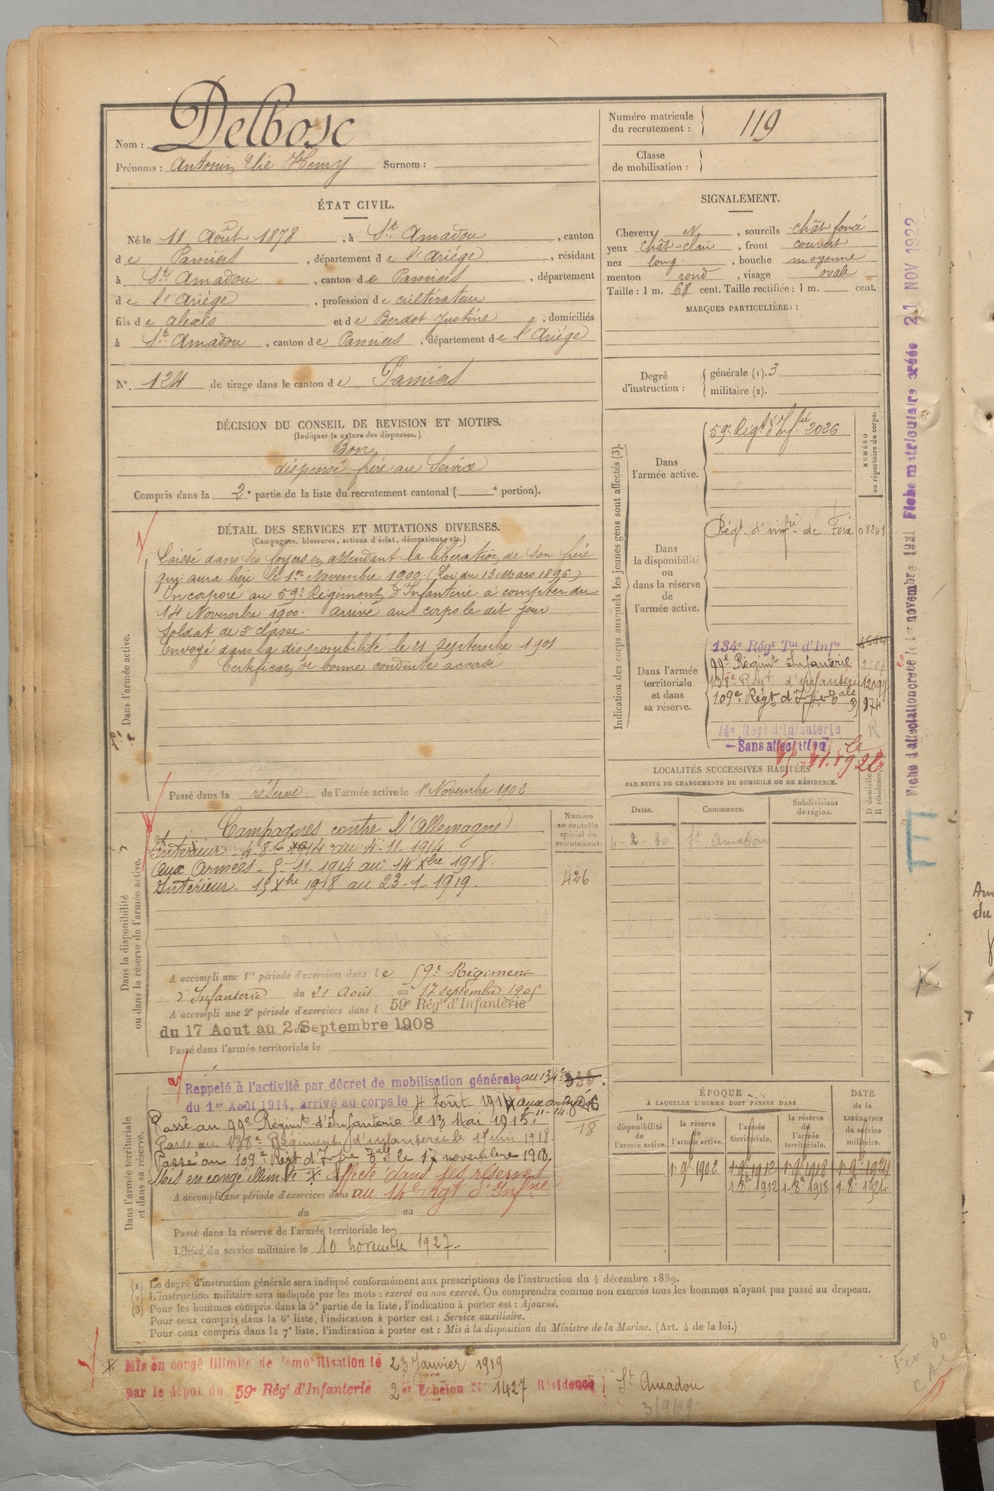 Nom : Delbosc
Prénoms : Antonin Elie Henry Surnom :
ÉTAT CIVIL.
Né le 11 Août 1878, à St Amadou, canton
de Pamiers, département de l'Ariège, résidant
à St Amadou, canton de Pamiers, département
de l'Ariège, profession de cultivateur
fils de Alexis et de Berdot Justine, domiciliés
à St Amadou, canton de Pamiers, département de l'Ariège
N°. 124 de tirage dans le canton de Pamiers
DÉCISION DU CONSEIL DE REVISION ET MOTIFS.
(Indiquer la nature des dispenses.)
Bon
dispensé frère au Service
Compris dans la 2e partie de la liste du recrutement cantonal ( e portion).
DÉTAIL DES SERVICES ET MUTATIONS DIVERSES.
(Campagnes, blessures, actions d'éclat, décorations, etc.)
Dans l'armée active.
Laissé dans ses foyers en attendant la libération de son frère
qui aura lieu le 1er Novembre 1900 (Loi du 13 Mars 1896)
Incorporé au 59e Régiment d'Infanterie à compter du
14 Novembre 1900. arrivé au corps le dit jour
Soldat de 2e classe.
Envoyé dans la disponibilité le 21 Septembre 1901
Certificat de bonne conduite accordé
Passé dans la réserve de l'armée active le 1er Novembre 1902
Dans la disponibilité
ou dans la réserve de l'armée active.
Numéro
au contrôle
spécial du
recrutement.
426
Campagnes contre l'Allemagne
Intérieur 4-8-1914 au 4-11-1914
Aux Armées 5-11 1914 au 14 Xbre 1918.
Intérieur 15 Xbre 1918 au 23-1 1919.
A accompli une 1re période d'exercices dans le 59e Régiment
d'Infanterie du 21 Août au 17 septembre 1905
A accompli une 2e période d'exercices dans l 59e Régt d'Infanterie
du 17 Aout au 2 Septembre 1908
Passé dans l'armée territoriale le
Dans l'armée territoriale
et dans sa réserve.
Rappelé à l'activité par décret de mobilisation générale au 134e
du 1er Août 1914, arrivé au corps le 4 Août 1914 aux armées
5-11-14
18
Passé au 99e Régiment d'Infanterie le 13 Mai 1915.
Passé au 138e Régiment d'infanterie le 1er juin 1918
Passé au 109e Régt d'Infie le 17 novembre 1918.
Mis en congé illimité Affecté dans les réserves
au 14e Rgt d'Infrie
A accompli une période d'exercices dans
du au
Passé dans la réserve de l'armée territoriale le
Libéré du service militaire le 10 novembre 1927.
Numéro matricule
du recrutement : 119
Classe
de mobilisation :
SIGNALEMENT.
Cheveux N, sourcils chât foncé
yeux chât-clair, front couvert
nez long, bouche moyenne
menton rond, visage ovale
Taille : 1 m. 68 cent. Taille rectifiée : 1 m. cent.
MARQUES PARTICULIÈRES :
Degré
d'instruction :
générale (1). 3
militaire (2).
Indication des corps auxquels les jeunes gens sont affectés (3).
NUMÉRO
au répertoire du corps.
Dans
l'armée active.
59e Régt d'Infrie 2026
Dans
la disponibilité
ou
dans la réserve
de
l'armée active.
Régt d'infrie de Foix 08241
Dans l'armée
territoriale
et dans
sa réserve.
134e Régt Tal d'Infie
99e Régimt Infanterie
138e Régt d'infanterie 12097
109e Régt d'Infie 974
14e Régt d'Infanterie
— Sans affectation
LOCALITÉS SUCCESSIVES HABITÉES
PAR SUITE DE CHANGEMENTS DE DOMICILE OU DE RÉSIDENCE.
D domicile
R résidence.
Dates.
Communes.
Subdivisions
de région.
1-2-20 St Amadou
ÉPOQUE
À LAQUELLE L'HOMME DOIT PASSER DANS
DATE
de la
LIBÉRATION
du
service
militaire.
la
disponibilité
de
l'armée active.
la réserve
de
l'armée active.
l'armée
territoriale.
la réserve
de
l'armée
territoriale.
1-9bre 1902 1-9bre 1912 1-9bre 1918 1-9bre 1924
1-8bre 1912 1-8bre 1918 1-8bre 1924
Fiche d'affectation créée le 1er novembre 1921
Fiche matriculaire créée 21 NOV 1922
(1) Le degré d'instruction générale sera indiqué conformément aux prescriptions de l'instruction du 4 décembre 1889.
(2) L'instruction militaire sera indiquée par les mots : exercé ou non exercé. On comprendra comme non exercés tous les hommes n'ayant pas passé au drapeau.
(3) Pour les hommes compris dans la 5e partie de la liste, l'indication à porter est : Ajourné.
Pour ceux compris dans la 6e liste, l'indication à porter est : Service auxiliaire.
Pour ceux compris dans la 7e liste, l'indication à porter est : Mis à la disposition du Ministre de la Marine. (Art. 4 de la loi.)
Mis en congé illimité de démobilisation le 23 Janvier 1919
par le dépôt du 59e Régt d'Infanterie 2er Echelon N° 1427 Résidence : St Amadou